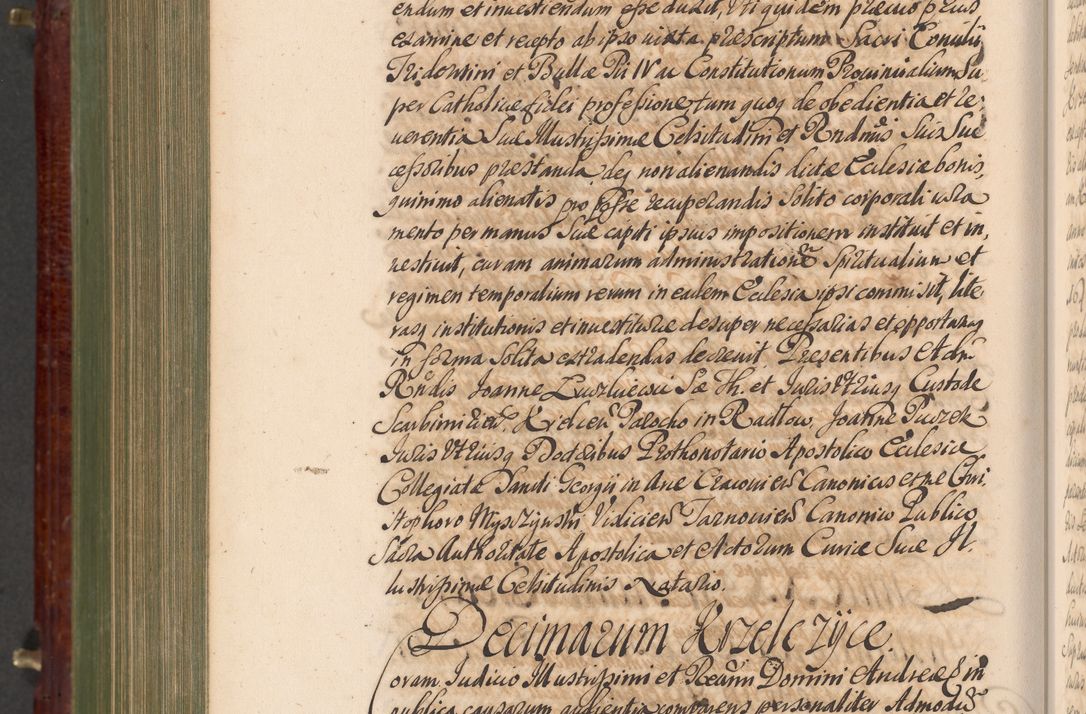 endum et inuestiendum esse duxit, Vti quidem præuio præuis
examine et recepto ab ipso iuxta præscriptum Sacri Concilii
Tridentini et Bullæ Pii IV ac Constitutionum Prouincialium Su
per Catholicæ fidei professione tum quoq de obedientia et re
uerentia Suæ Illustrissimæ Celsitudini et Rndmis Suis Suc
cessoribus præstanda deq non alienandis dictæ Ecclesiæ bonis,
quinimo alienatis pro posse recuperandis Solito corporali iura
mento per manus Suæ capiti ipsius impositionem instituit et in
uestiuit, curam animarum administrationē Spiritualium et
regimen temporalium rerum in eadem Ecclesia ipsi commisit, lite
rasq institutionis et inuestituræ desuper necessarias et opportunas
in forma Solita extradendas decreuit. Præsentibus Adm
Rndis Joanne Sæ Th. et Juris Vtriusq Custode
Scarbimirien. Parocho in Radłow, Joanne
Juris Vtriusq Doctoribus Prothonotario Apostolico Ecclesiæ
Collegiatæ Sancti Georgii in Arce Cracouien Canonicis et me Chri
stophoro Myszynski Vislicien Tarnouien Canonico Publico
Sacra Authoritate Apostolica et Actorum Curiæ Suæ Il
lustrissimæ Celsitudinis Notario.
Decimarum Krzelczyce.
oram Judicio Illustrissimi et Reverndi Domini Andreæ in
publica causarum audientia comparens personaliter Admodū